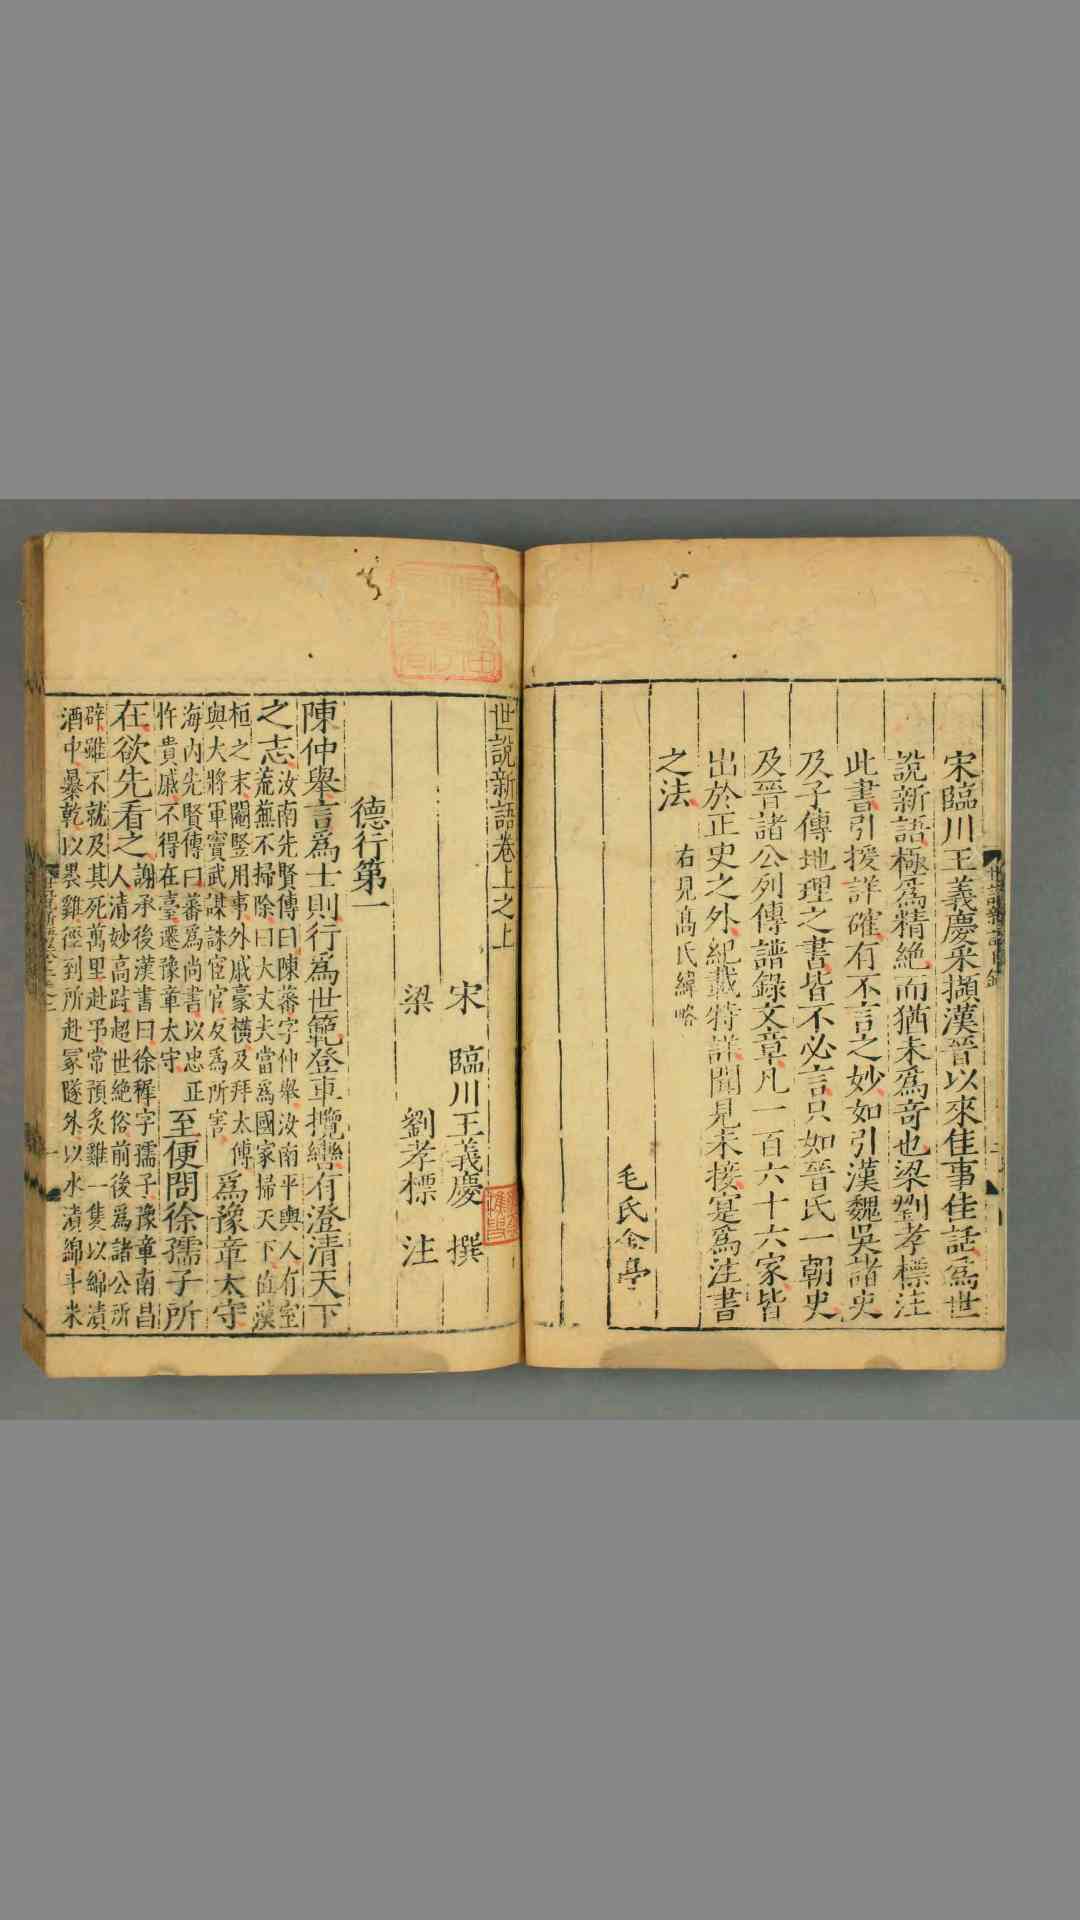 宋臨川王義慶采擷漢晉以來佳事佳話爲世
說新語極爲精絶而猶未爲奇也梁劉孝標注
此書引援詳確有不言之妙如引漢魏吳諸史
及子傳地理之書皆不必言只如晉氏一朝史
及晉諸公列傳譜錄文章凡一百六十六家皆
出於正史之外紀載特詳聞見未接寔爲注書
之法
右見高氏緯略
毛氏金亭
世說新語卷上之上
宋 臨川王義慶 撰
梁 劉孝標 注
德行第一
陳仲舉言爲士則行爲世範登車攬轡有澄清天下
之志
汝南先賢傳曰陳蕃字仲舉汝南平輿人有室
荒蕪不掃除曰大丈夫當爲國家掃天下值漢
桓之末閹豎用事外戚豪橫及拜太傅
與大將軍竇武謀誅宦官反爲所害
爲豫章太守
海内先賢傳曰蕃爲尚書以忠正
忤貴戚不得在臺遷豫章太守
至便問徐孺子所
在欲先看之
謝承後漢書曰徐穉字孺子豫章南昌
人清妙高跱超世絶俗前後爲諸公所
辟雖不就及其死萬里赴弔常預炙雞一隻以綿漬
酒中暴乾以裹雞徑到所赴冢隧外以水漬綿斗米